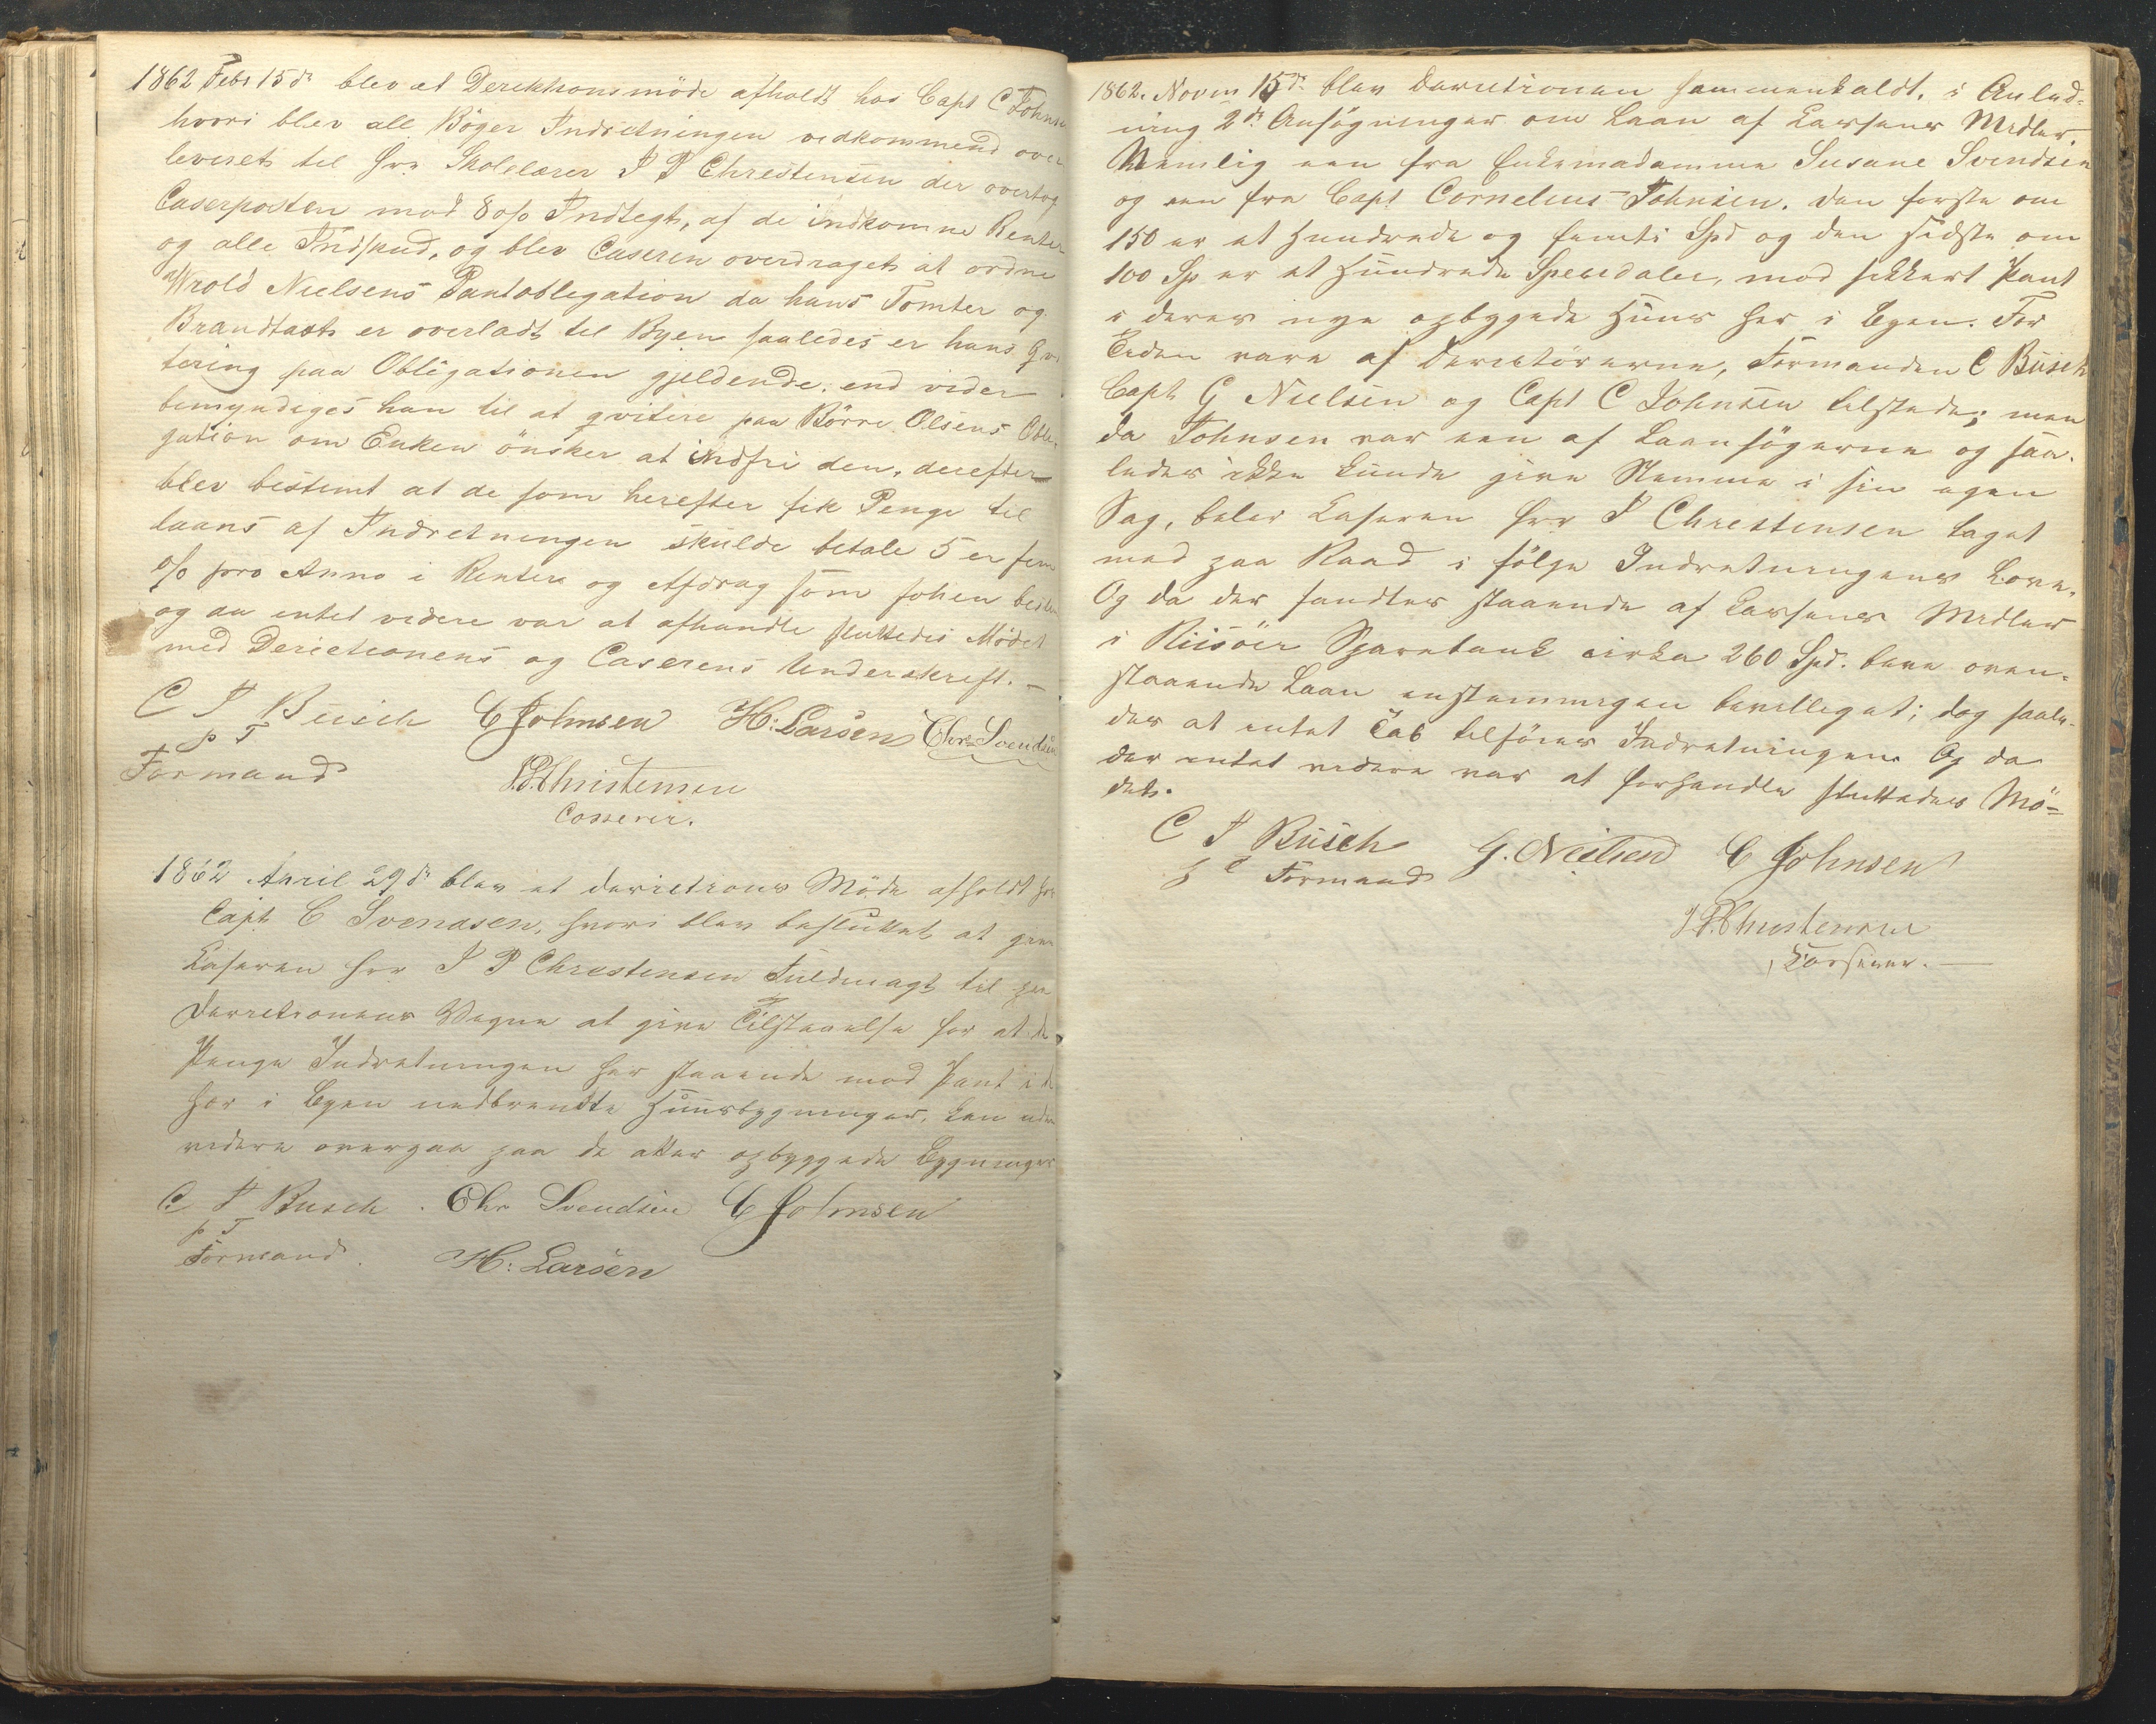 1862 Febr 15de blev et Derektionsmöde afholdt hos Capt C Johns
hvori blev all Böger Indretningen vedkommend over
leveret til Hrr Skolelærer J P Christensen der overtog
Caserposten mod 8 o/o Indtegt, af de indkomne Renter
og alle Indskud, og blev Caseren overdraget at ordne
Wrold Nielsens Pantoblegation da hans Tomter og
Brandtaxt er overladt til Byen saaledes er hans Qvi
tering paa Obligationen gjeldende. end vider
bemyndiges han til at qvitere paa Börre Olsens Oble
gation om Enken önsker at indfri den, derefter
blev bestemt at de som herefter fik Penge til
laans af Indretningen skulde betale 5 er fem
o/o pro Anno i Renter og Afdrag som forhen best
og da entet videre var at afhandle sluttedes Mödet
med Derictionens og Caserens Underskreft. —
C J Busch C Johnsen H: Larsen Chr. Svendsen
p T
Formand
J.P. Christensen
Casserer.
1862 April 29de blev et Derictions Möde afholdt hos
Capt C Svendsen, hvori blev besluttet at give
Kaseren Hrr J P Chrestensen Fuldmagt til paa
Derectionens Vegne at give Tilstaaelse for at de
Penge Indretningen har staaende mod Pant i de
her i Byen nedbrendte Huusbygninger, kan uden
videre overgaa paa de atter opbyggede Bygninger
C J Busch . Chr Svendsen C Johnsen
p T
Formand. H: Larsen
1862. Novem 15de blev Derectionen sammenkaldt, i Anled-
ning 2de Ansögninger om Laan af Kassens Midler,
Nemlig een fra Enkemadamme Susane Svendsen
og een fra Capt Cornelius Johnsen. den förste om
150 er et Hundrede og femti Spd og den sidste om
100 Sp er et Hundrede Speesdaler, mod sekkert Pant
i deres nye opbyggede Huus her i Byen. For
Tiden vare af Derectörerne, Formanden C Busch
Capt G Nielsen og Capt C Johnsen tilstede; men
da Johnsen var een af Laansögerne og saa-
ledes ikke kunde give Stemme i sin egen
Sag, belev Kaseren Hrr P Chrestensen taget
med paa Raad i fölge Indretningens Love.
Og da der fandtes staaende af Kassens Midler
i Riisöer Sparebank cirka 260 Spd. beve oven-
staaende Laan enstemmegen bevelleget; dog saale-
des at entet Tab tilföies Indretningen. Og da
der entet videre var at forhandle sluttedes Mö-
det.
C J Busch G. Neilsen C Johnsen
p t Formand
J.P. Christensen
Kasserer. —